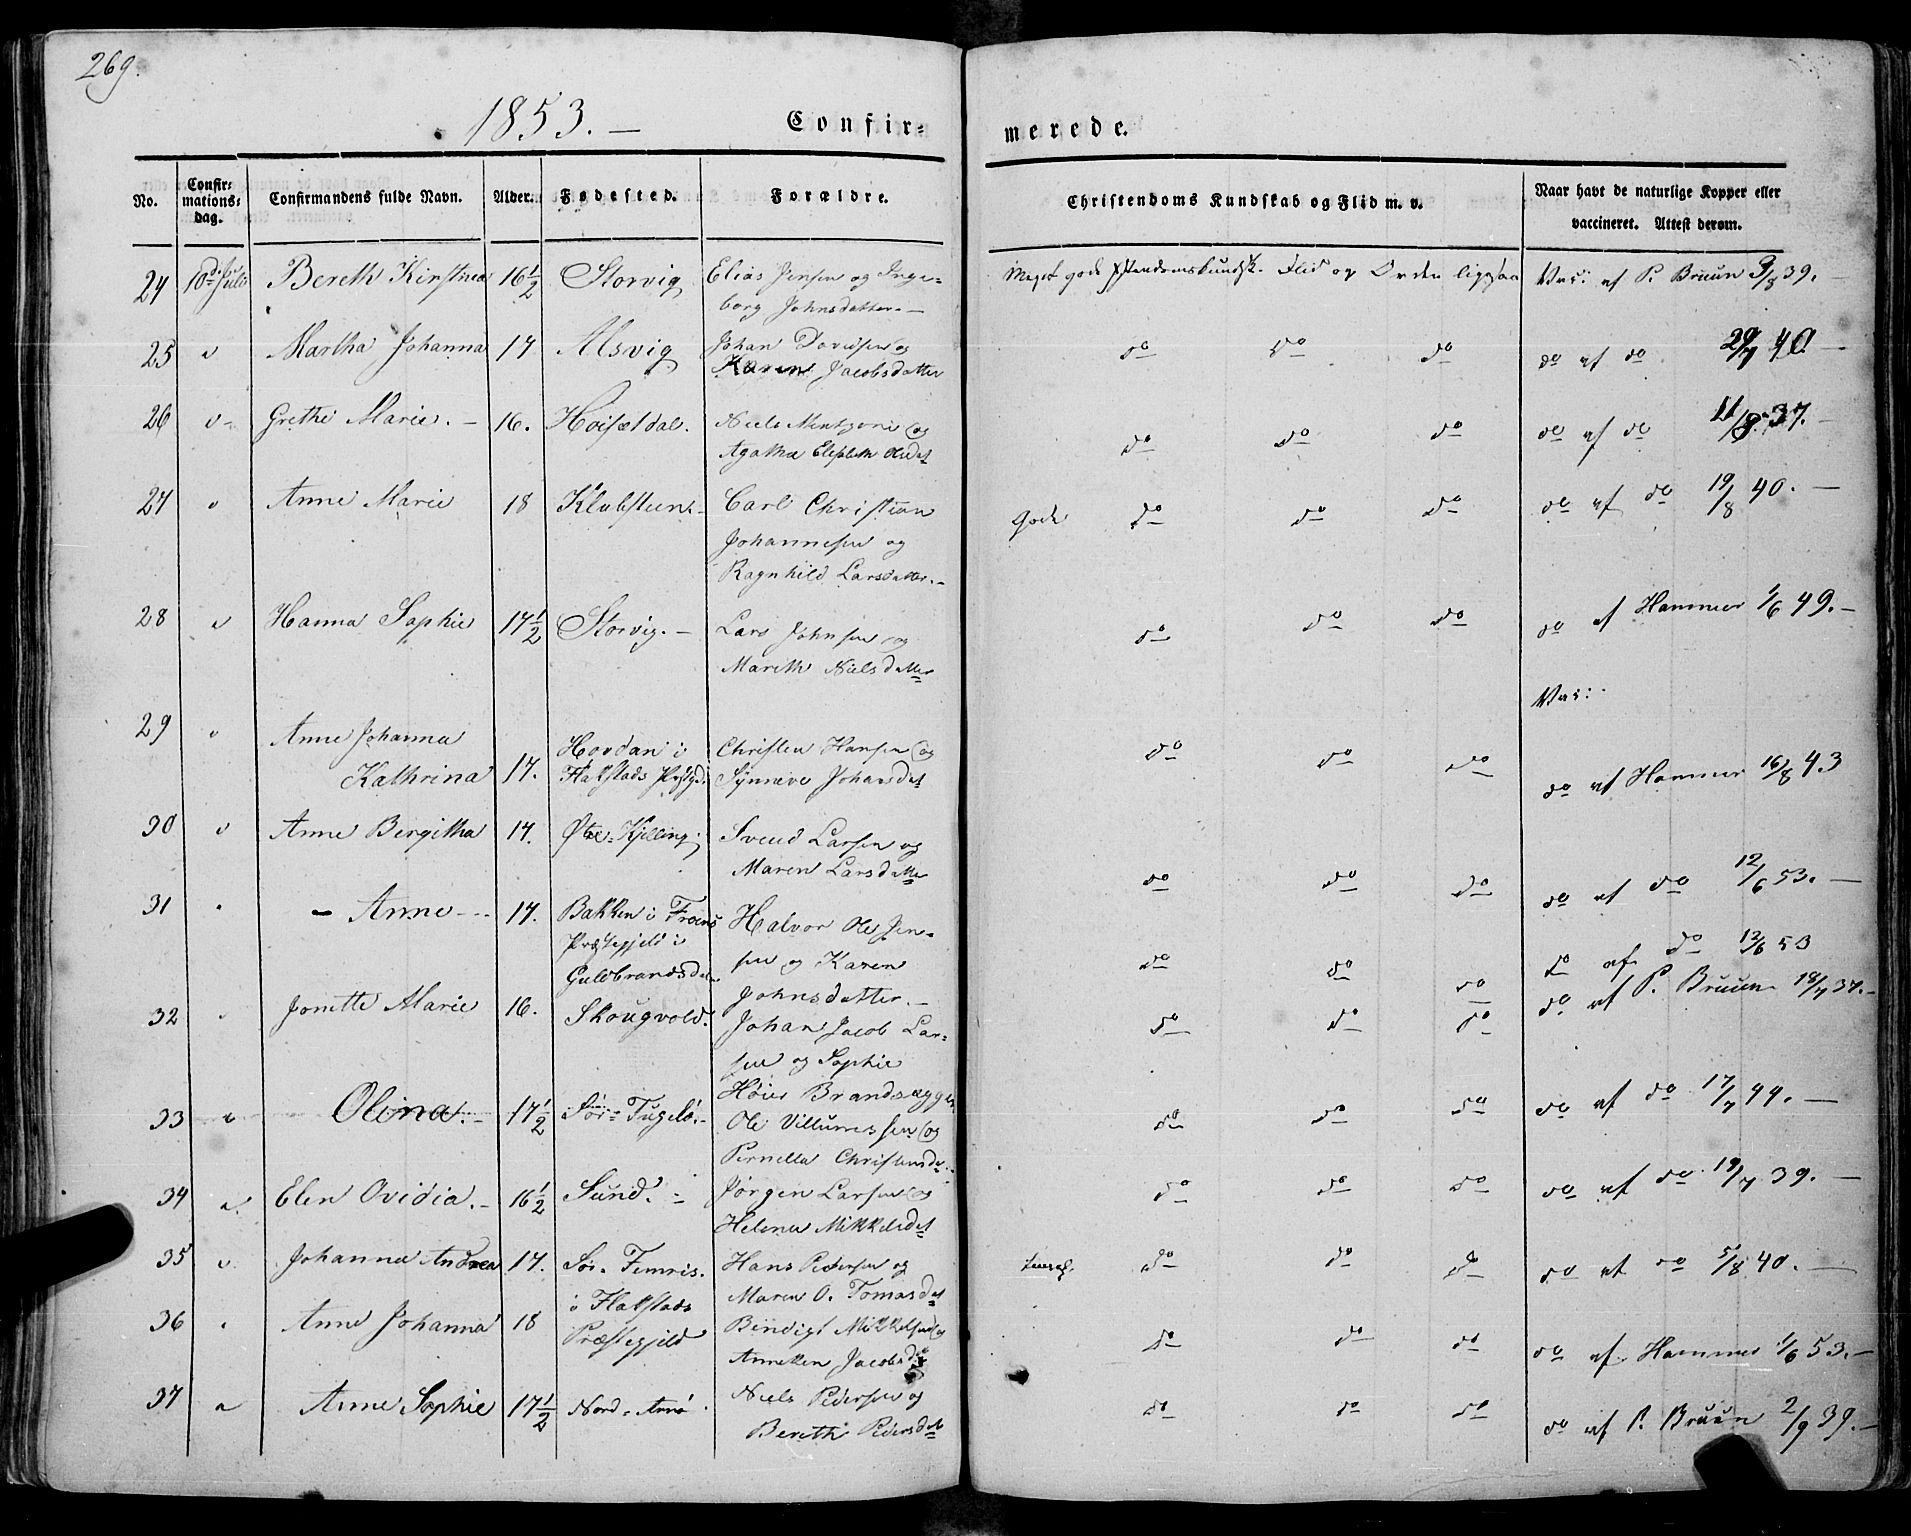 269.
1853. — Confir-
merede.
No. Confir-mations-dag. Confirmandens fulde Navn. Alder. Fødested. Forældre.
Christendoms Kundskab og Flid m. v. Naar havt de naturlige Kopper eller vaccineret. Attest derom.
24 10de Juli Bereth Kirstine 16 1/2 Storvig Elias Jensen og Inge-
borg Johnsdatter. —
Meget gode Xstendomskundsk. Flid og Orden ligesaa Vac: af P. Bruun 9/8 39. —
25 " Martha Johanna 17 Alsvig Johan Davidsen og
Karen Jacobsdatter
do do do do af do 29/7 40. —
26 " Grethe Marie. — 16. Niels og
Agatha Elisabeth Olsdat
do do do do af do 11/8 37. —
27 " Anne Marie 18 Klubsteen. Carl Christian
Johannesen og
Ragnhild Larsdatter. —
gode do do do do af do 19/8 40. —
28 " Hanna Sophie 17 1/2 Storvig. — Lars Johnsen og
Mareth Nielsdatter
do do do do af Hammer 1/6 49. —
Vac:
29 " Anne Johanna
Kathrina 17. Hovdan i
Flakstads Prstgd. Christen Hansen og
Synneve Johansdat
do do do do af Hammer 16/8 43
30 " Anne Bergitha 17. Øtre-Kjelling. Svend Larsen og
Maren Larsdatter
do do do do af do 12/6 53. —
31 " - Anne - 17. Bakken i Froens
Præstegjeld i
Guldbrandsdal Halvor Ole Jen-
sen og Karen
Johnsdatter. —
do do do do af do 12/6 53
32 " Jonette Marie 16. Skougvold. Johan Jacob Lar-
sen og Sophie
Høier Brandsægg
do do do do af P. Bruun 18/7 37. —
33 " Olina. — 17 1/2 Sør-Fugelø. — Ole Villumssen og
Pernella Christensd.
do do do do af do 17/7 44. —
34 " Elen Ovidia. — 16 1/2 Sund. Jørgen Larsen og
Helena Mikkelsdat
do do do do af do 19/7 39. —
35 " Johanna Andrea 17. Sør-Femris. Hans Pedersen og
Maren O. Tomasdat
do do do do af do 5/8 40. —
36 " Anne Johanna 18 i Flakstads
Præstegjeld Bendigt Mikkelsen og
Anneken Jacobsdat
do do do do af Hammer 1/6 53. —
37 " Anne Sophie 17 1/2 Nord-Arnø. Niels Pedersen og
Bereth Pedersdat
do do do do af P. Bruun 2/9 39. —